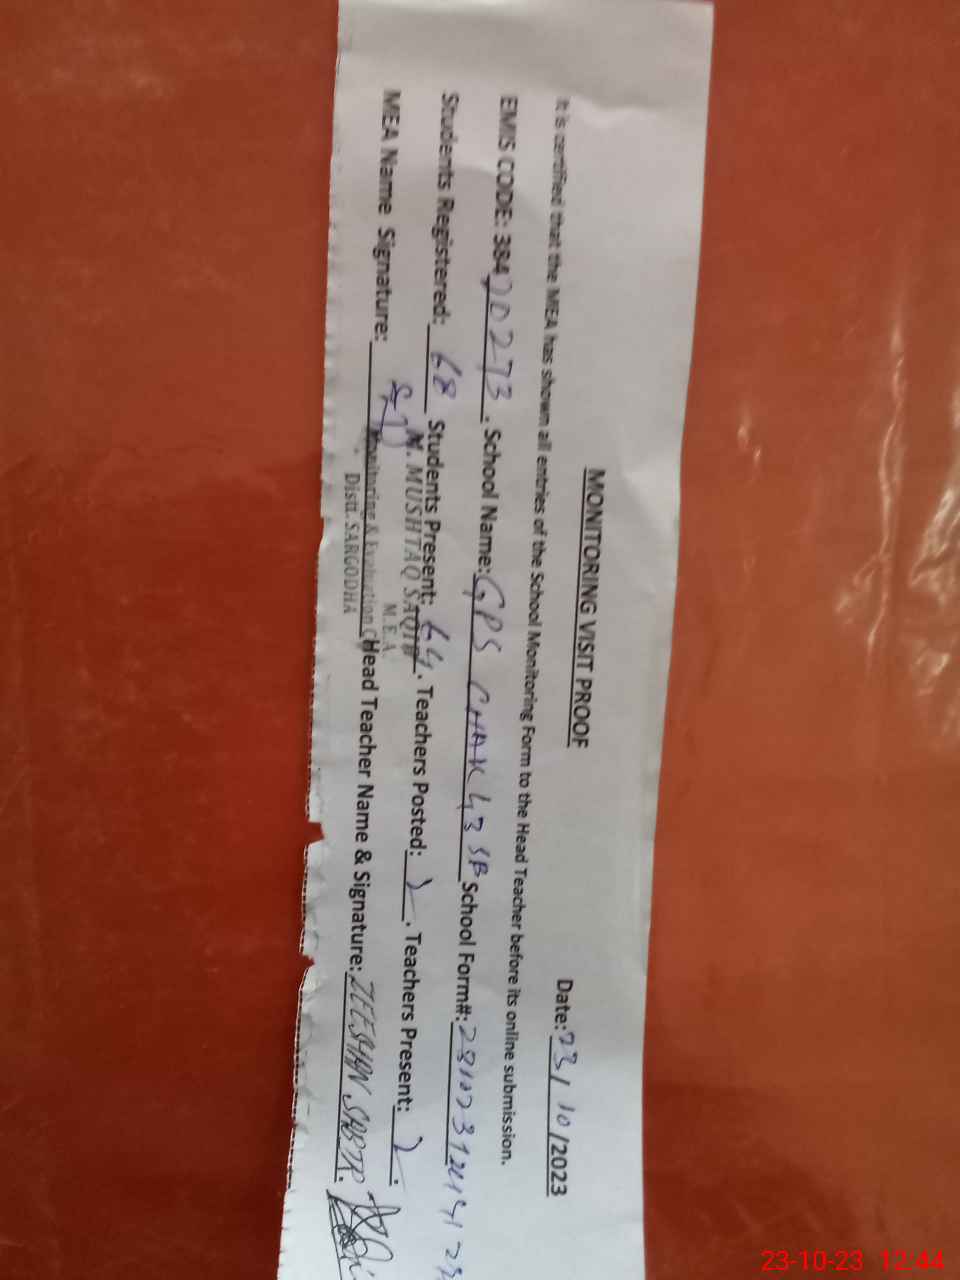 MONITORING VISIT PROOF
Date: 23/10/2023
It is certified that the MEA has shown all entries of the School Monitoring Form to the Head Teacher before its online submission.
EMIS CODE: 38470273. School Name: GPS CHAK 43 SB School Form#:
Students Registered: 68 Students Present: 64. Teachers Posted: 2. Teachers Present: 2.
M. MUSHTAQ SAQIB
M.E.A.
MEA Name Signature: Monitoring & Evaluation Head Teacher Name & Signature: ZEESHAN SABIR.
Distt. SARGODHA
23-10-23 12:44